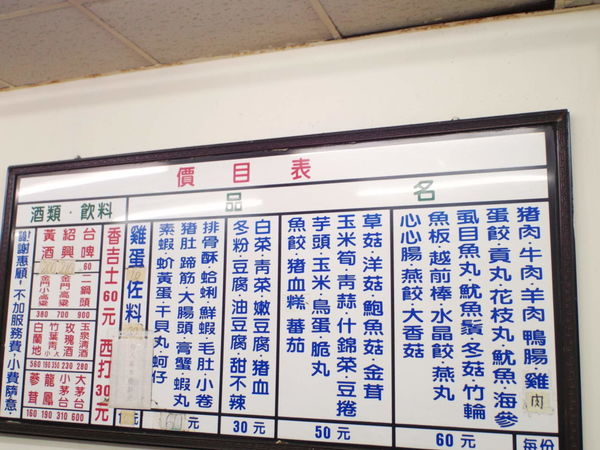 價目表
品名
酒類·飲料
豬肉·牛肉·羊肉 鴨腸·雞肉
蛋餃·貢丸·花枝丸·魷魚·海參
虱目魚丸·魷魚鬚·冬菇·竹輪
魚板·越前棒·水晶餃·燕丸
心心腸·燕餃·大香菇
每份
60元
草菇·洋菇·鮑魚菇·金茸
玉米筍·靑蒜·什錦菜·豆捲
芋頭·玉米·鳥蛋·脆丸
魚餃·猪血糕·蕃茄
50元
白菜·靑菜·嫩豆腐·猪血
冬粉·豆腐·油豆腐·甜不辣
30元
排骨酥·蛤蜊·鮮蝦·毛肚·小卷
猪肚·蹄筋·大腸頭·膏蟹·蝦丸
素蝦·蚧黃·蛋干貝丸·蚵仔
60元
雞蛋·佐料
元
香吉士60元 西打30元
台啤
60
紹興酒
黃酒
二鍋頭
900
金門高粱
700
金門小高粱
380
玉泉清酒
280
玫瑰酒
230
竹葉靑
大350
小190
白蘭地
560
大茅台
600
小茅台
310
龍鳳
190
蔘茸
160
謝謝惠顧，不加服務費，小費隨意。